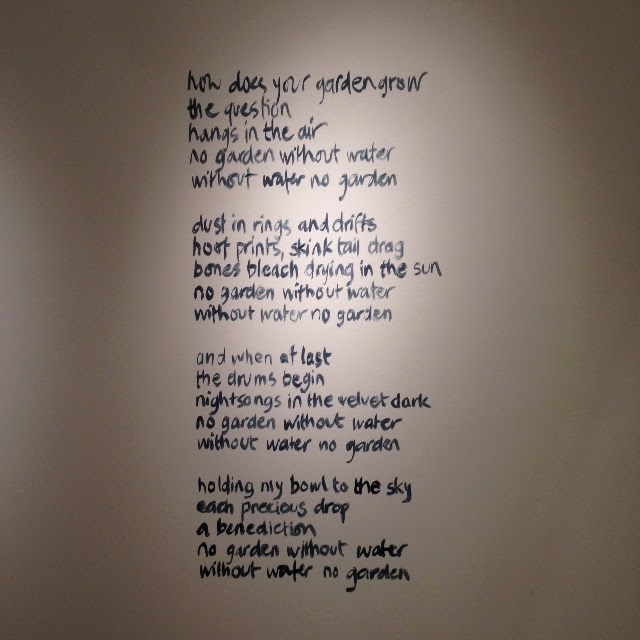 how does your garden grow
the question
hangs in the air
no garden without water
without water no garden
dust in rings and drifts
hoof prints, skink tail drag
bones bleach drying in the sun
no garden without water
without water no garden
and when at last
the drums begin
nightsongs in the velvet dark
no garden without water
without water no garden
holding my bowl to the sky
each precious drop
a benediction
no garden without water
without water no garden